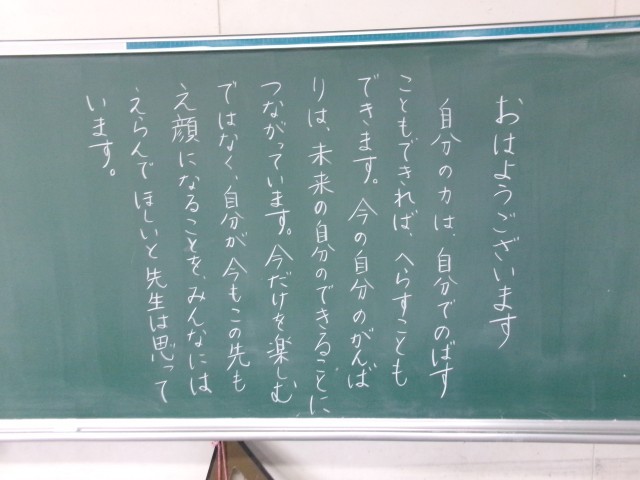 おはようございます
自分の力は、自分でのばす
こともできれば、へらすことも
できます。今の自分のがんば
りは、未来の自分のできることに
つながっています。今だけを楽しむ
ではなく、自分が今もこの先も
え顔になることを、みんなには
えらんでほしいと先生は思って
います。